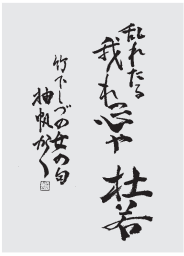 乱れたる
我れの心や
杜若
竹下しづの女の句
抽帆かく